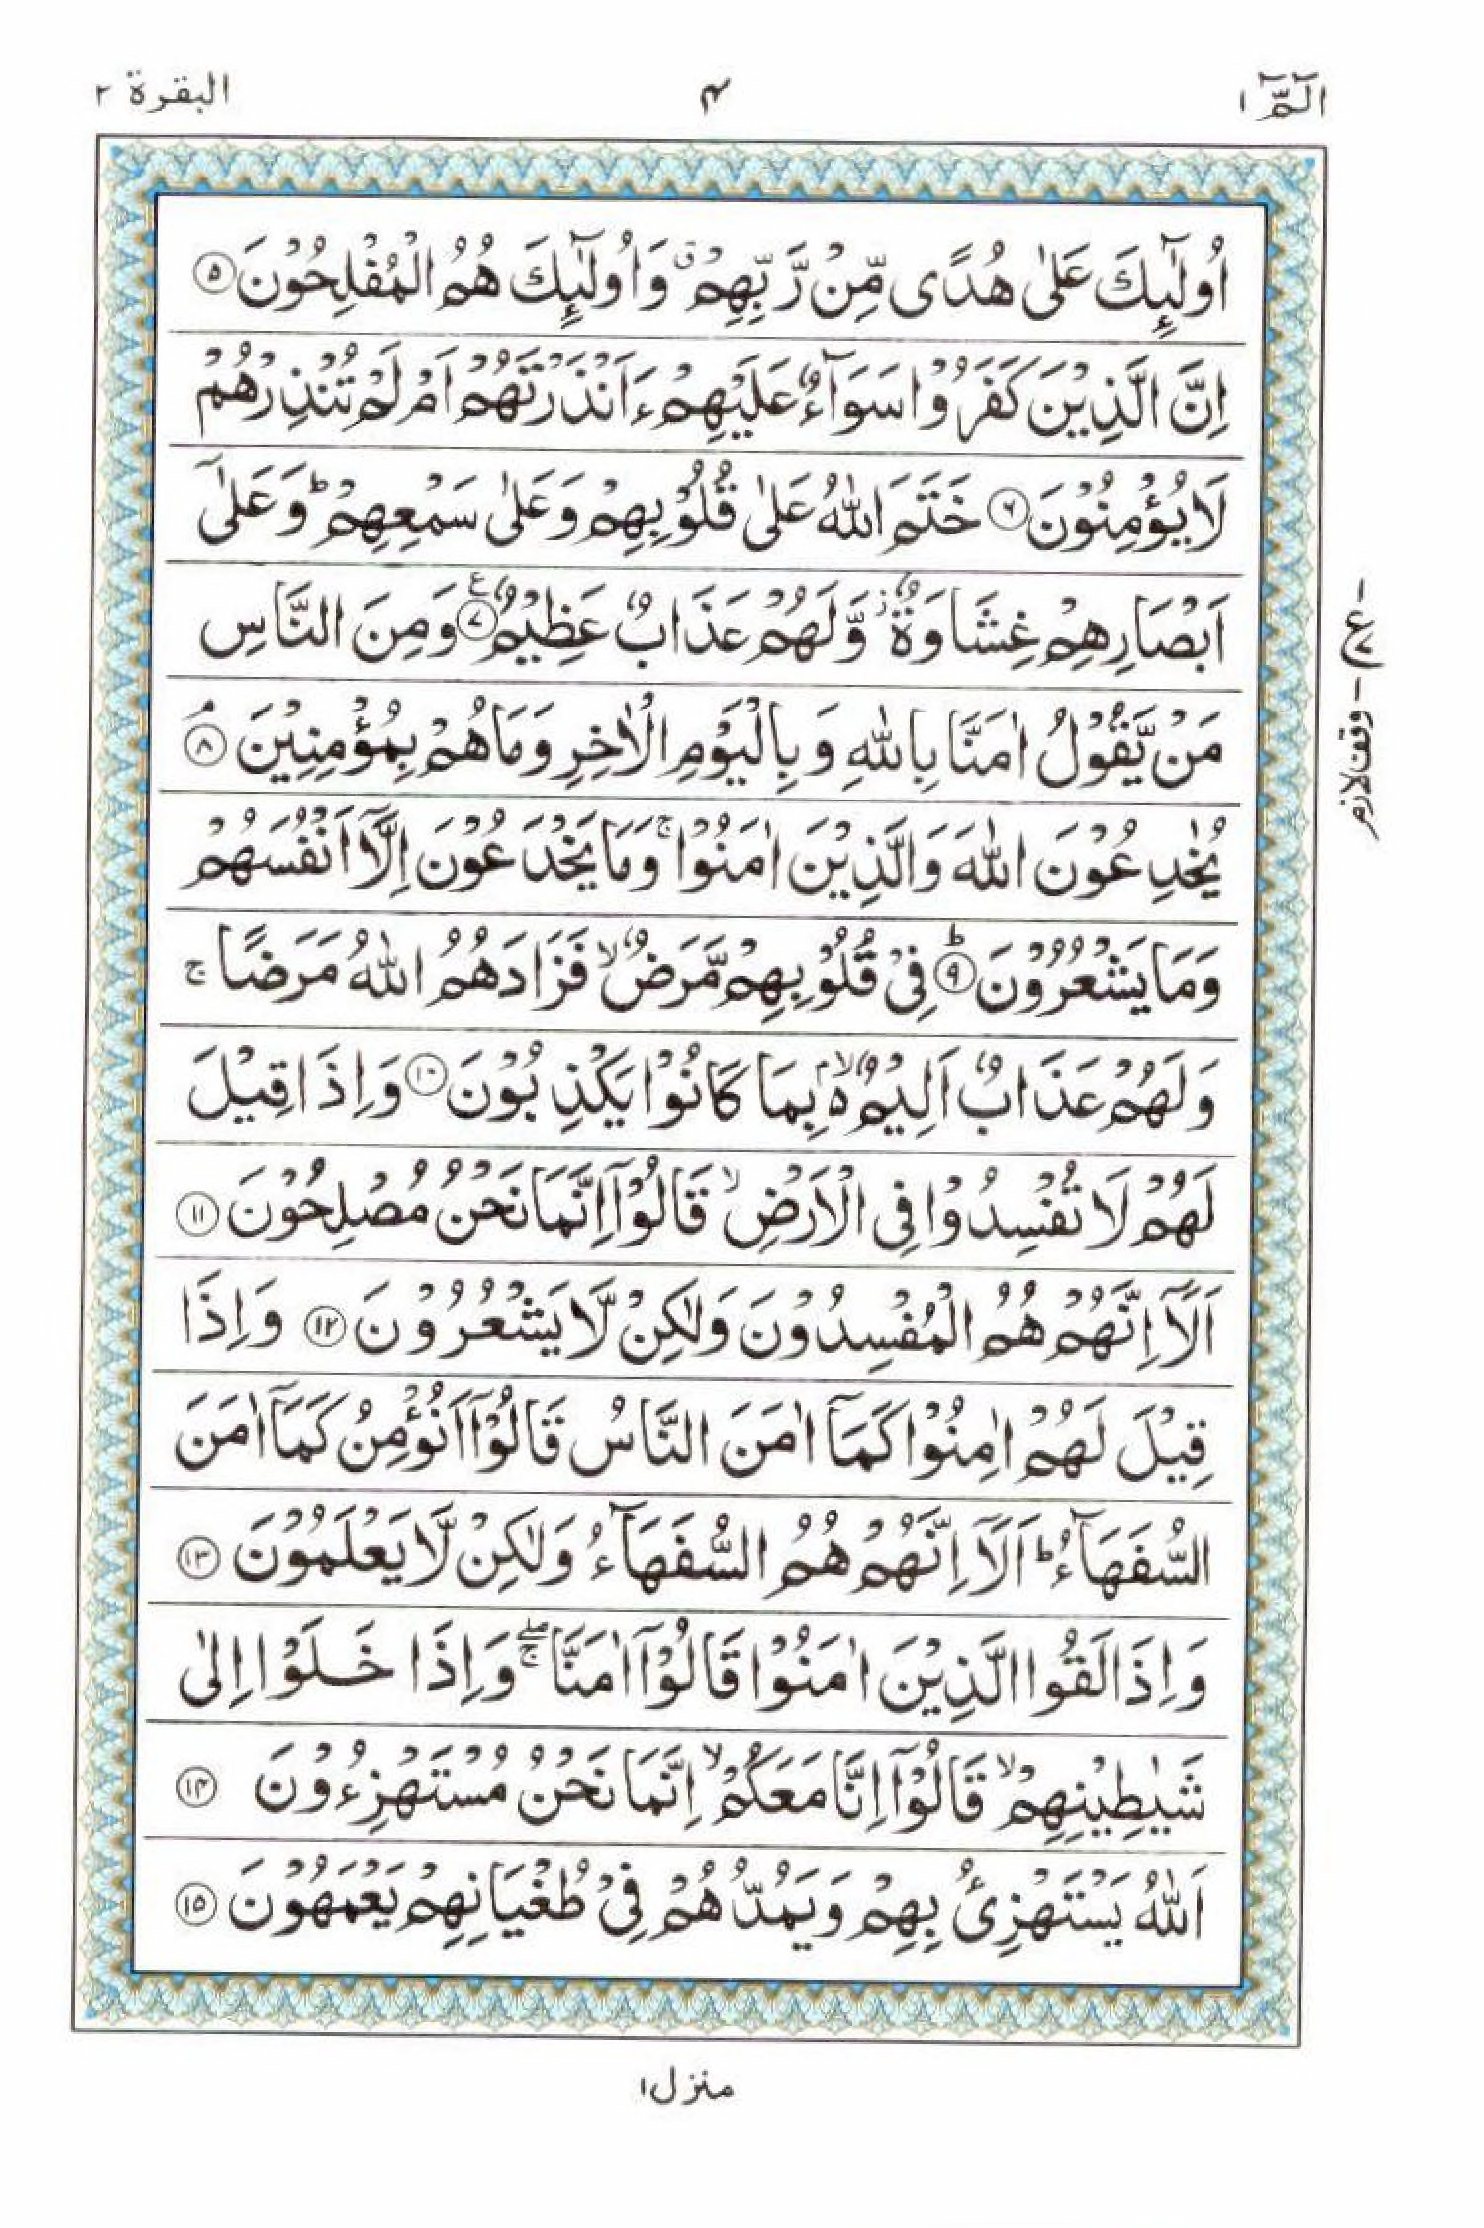 الٓمّٓ ۱
۴
البقرة ۲
اُولٰٓئِكَ عَلٰى هُدًى مِّنْ رَّبِّهِمْ ۗ وَاُولٰٓئِكَ هُمُ الْمُفْلِحُوْنَ ۵
اِنَّ الَّذِيْنَ كَفَرُوْا سَوَآءٌ عَلَيْهِمْ ءَاَنْذَرْتَهُمْ اَمْ لَمْ تُنْذِرْهُمْ
لَا يُؤْمِنُوْنَ ۶ خَتَمَ اللّٰهُ عَلٰى قُلُوْبِهِمْ وَعَلٰى سَمْعِهِمْ ؕ وَعَلٰٓى
اَبْصَارِهِمْ غِشَاوَةٌ ز وَّلَهُمْ عَذَابٌ عَظِيْمٌ ۷ ع وَمِنَ النَّاسِ
مَنْ يَّقُوْلُ اٰمَنَّا بِاللّٰهِ وَبِالْيَوْمِ الْاٰخِرِ وَمَا هُمْ بِمُؤْمِنِيْنَ ۘ ۸
يُخٰدِعُوْنَ اللّٰهَ وَالَّذِيْنَ اٰمَنُوْا ۚ وَمَا يَخْدَعُوْنَ اِلَّآ اَنْفُسَهُمْ
وَمَا يَشْعُرُوْنَ ؕ ۹ فِىْ قُلُوْبِهِمْ مَّرَضٌ ۙ فَزَادَهُمُ اللّٰهُ مَرَضًا ۚ
وَلَهُمْ عَذَابٌ اَلِيْمٌ ۙ ۵ۢ بِمَا كَانُوْا يَكْذِبُوْنَ ۱۰ وَاِذَا قِيْلَ
لَهُمْ لَا تُفْسِدُوْا فِى الْاَرْضِ ۙ قَالُوْٓا اِنَّمَا نَحْنُ مُصْلِحُوْنَ ۱۱
اَلَآ اِنَّهُمْ هُمُ الْمُفْسِدُوْنَ وَلٰكِنْ لَّا يَشْعُرُوْنَ ۱۲ وَاِذَا
قِيْلَ لَهُمْ اٰمِنُوْا كَمَآ اٰمَنَ النَّاسُ قَالُوْٓا اَنُؤْمِنُ كَمَآ اٰمَنَ
السُّفَهَآءُ ؕ اَلَآ اِنَّهُمْ هُمُ السُّفَهَآءُ وَلٰكِنْ لَّا يَعْلَمُوْنَ ۱۳
وَاِذَا لَقُوا الَّذِيْنَ اٰمَنُوْا قَالُوْٓا اٰمَنَّا ۖ ۚ وَاِذَا خَلَوْا اِلٰى
شَيٰطِيْنِهِمْ ۙ قَالُوْٓا اِنَّا مَعَكُمْ ۙ اِنَّمَا نَحْنُ مُسْتَهْزِءُوْنَ ۱۴
اَللّٰهُ يَسْتَهْزِئُ بِهِمْ وَيَمُدُّهُمْ فِىْ طُغْيَانِهِمْ يَعْمَهُوْنَ ۱۵
وقف لازم
منزل ۱